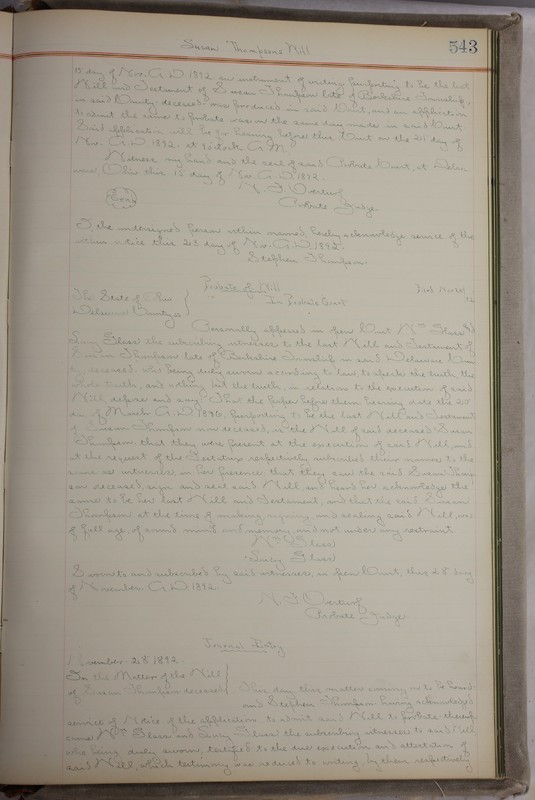 Susan Thompsons Will
543
15 day of Nov. A.D. 1892, an instrument of writing purporting to be the last
Will and Testament of Susan Thompson late of Berkshire Township,
in said County, deceased, was produced in said Court, and an application
to admit the same to probate was on the same day made in said Court.
Said application will be for hearing before this Court on the day of
Nov. A.D. 1892. at o'clock A.M.
Witness my hand and the seal of said Probate Court, at Dela-
ware, Ohio this 15 day of Nov. A.D. 1892.
Seal
Probate Judge
I, the undersigned person within named, hereby acknowledge service of the
within notice this 28 day of Nov. A.D. 1892.
Stephen Thompson.
Probate of Will
The State of Ohio
Delaware County ss
In Probate Court
Personally appeared in open Court Wm Slass and
Lucy Slass the subscribing witnesses to the last Will and Testament of
Susan Thompson late of Berkshire Township in said Delaware Coun
ty deceased, who being duly sworn according to law to speak the truth, the
whole truth, and nothing but the truth, in relation to the execution of said
Will, depose and say: That the paper before them bearing date the
day of March A.D. purporting to be the last Will and Testament
of Susan Thompson now deceased, is the Will of said deceased Susan
Thompson, that they were present at the execution of said Will, and
at the request of the Testatrix respectively subscribed their names to the
same as witnesses, in her presence, that they saw the said Susan Thomp
son deceased, sign and seal said Will, and heard her acknowledge the
same to be her last Will and Testament, and that the said Susan
Thompson at the time of making, signing, and sealing said Will, was
of full age, of sound mind and memory, and not under any restraint.
Wm Slass
Lucy Slass
Sworn to and subscribed by said witnesses, in open Court, this 28 day
of November A.D. 1892
Probate Judge.
Journal Entry
November 28 1892.
In the Matter of the Will
of Susan Thompson deceased
This day this matter coming on to be heard
and Stephen Thompson having acknowledged
service of Notice of the application to admit said Will to probate thereof
came Wm Slass and Lucy Slass the subscribing witnesses to said Will
who being duly sworn, testified to the due execution and attestation of
said Will, which testimony was reduced to writing, by them respectively